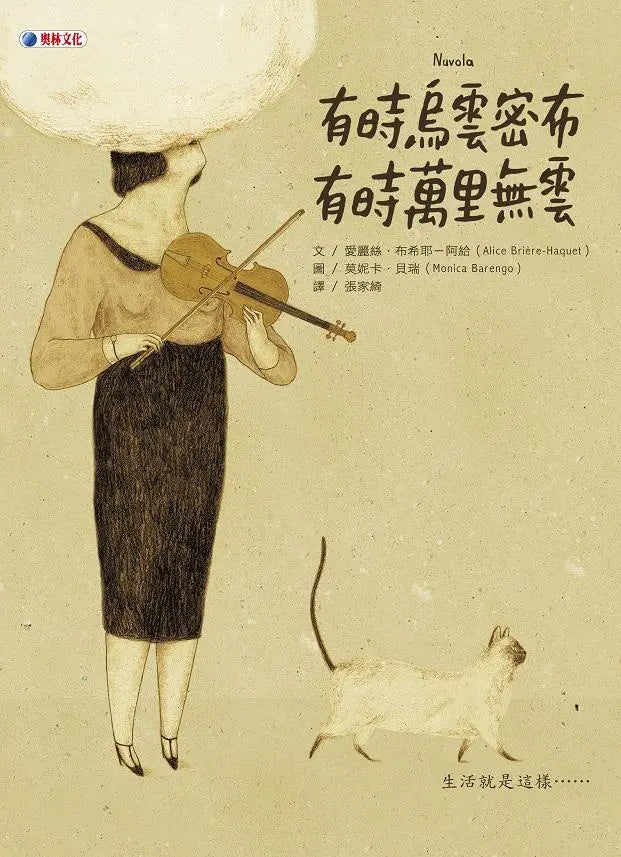 奧林文化
Nuvola
有時烏雲密布
有時萬里無雲
文 / 愛麗絲・布希耶－阿給（Alice Brière-Haquet）
圖 / 莫妮卡・貝瑞（Monica Barengo）
譯 / 張家綺
生活就是這樣⋯⋯